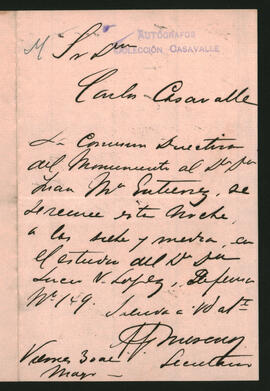 AUTÓGRAFOS
COLECCIÓN CASAVALLE
Sr Dn
Carlos Casavalle
La Comision Directiva
del Monumento al Dr Dn
Juan Ma Gutierrez, se
reune esta noche,
a las siete y media, en
el estudio del Dr Dn
Lucio V. Lopez, Defensa
No 149.
Saluda a Vd atte
Moreno
Secretario
Viernes 30 de
Mayo